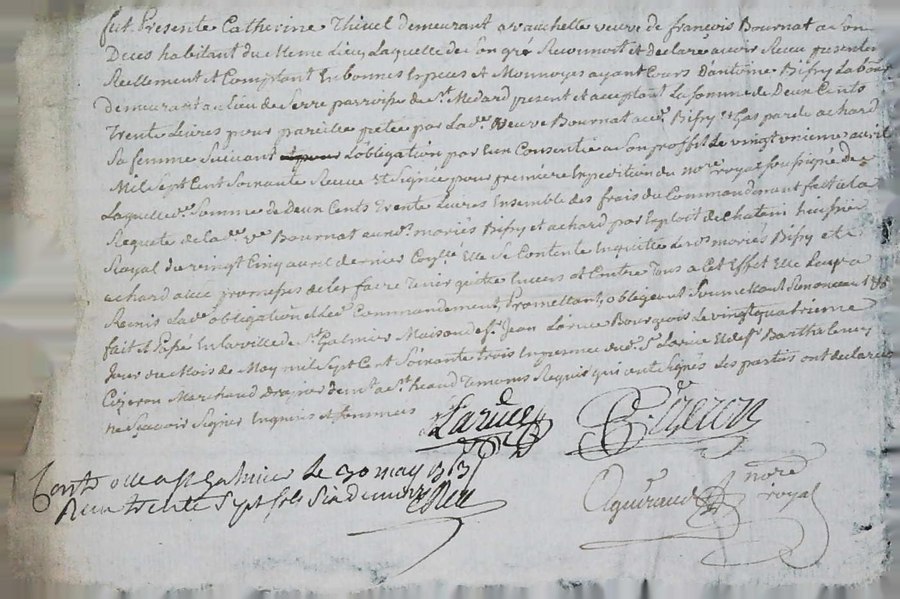 fut Presente Catherine Thieul demeurant a vauchette veuve de françois Bournat a Son
Deces habitant du meme Lieu Laquelle de Son gré Reconnoit et Declare avoir Recu presentem
Reellement et Comptant En bonnes Especes et Monnoyes ayant Cours D'antoine Bissy Labour
demeurant au lieu de Serre parroisse de St. Medard present et acceptant La somme de Deux Cents
Trente Livres pour pareille pretée par Lad.e veuve Bournat aud. Bissy et Gasparde achard
Sa femme Suivant L'obligation par Eux Consentie a Son proffit Le vingt unieme avril
Mil Sept Cent Soixante Receue et Signée pour premiere Expedition du nore royal soussigné de
Laquelle Somme de Deux Cents Trente Livres Ensemble des frais du Commandement fait a la
Requete de lad.e ve Bournat aud. mariés Bissy et achard par Exploit de huissier
Royal du vingt Cinq avril dernier Elle Se Contente Enquitte mariés Bissy et
achard avec promesse de les faire Tenir quitte Envers et Contre Tous a Cet Effet Elle Leur a
Remis Lad.e obligation et Commandement, promettant, obligeant Soumettant Renonceant
fait et Passé En la ville de St. Galmier Maison de Sr. Jean Larue Bourgeois Le vingtquatrieme
Jour du Mois de May mil Sept Cent Soixante trois En presence dud. Sr. Larue Et de Sr. Barthelemy
Cizeron Marchand Drapier Temoins Requis qui ont Signés Les parties ont declarées
ne Sçavoir Signer Enquis et Sommés
Larue Cizeron
Contrôlé a St Galmier Le 30 may 1763
Reçu trente Sept sols Six deniers
nore
royal